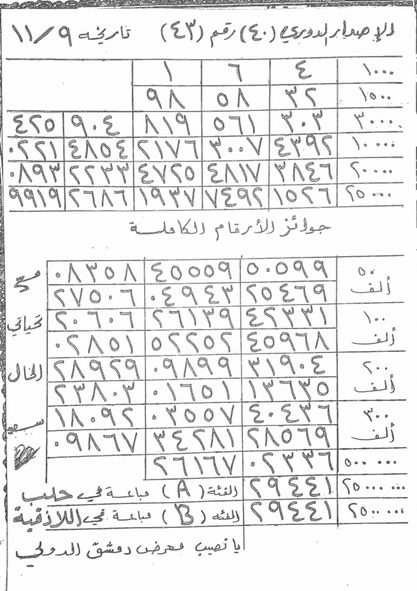 الإصدار الدوري (٤٠) رقم (٤٣) تاريخه ١١/٩
١٠٠٠ ٤ ٦ ١
١٥٠٠ ٣٢ ٥٨ ٩٨
٣٠٠٠ ٣٠٣ ٥٦١ ٨١٩ ٩٠٤ ٤٢٥
١٠٠٠٠ ٤٣٩٢ ٣٠٠٧ ٢١٧٦ ٤٨٥٤ ٠٢٢١
٢٠٠٠٠ ٣٨٤٦ ٤٨١٧ ٤٧٢٥ ٢٢٣٣ ٠٨٩٣
٢٥٠٠٠ ١٥٢٦ ٧٤٩٢ ١٩٣٧ ٢٦٨٦ ٩٩١٩
جوائز الأرقام الكاملة
٥٠ ٥٠٥٩٩ ٤٥٥٥٩ ٠٨٣٥٨ مع
ألف ٢٥٤٦٩ ٠٤٩٤٣ ٢٧٥٠٦
١٠٠ ٤٢٣٣١ ٢٦١٣٩ ٢٠٦٠٦ تحياتي
ألف ٤٥٩٦٨ ٥٢٢٥٢ ٠٢٨٥١
٢٠٠ ٣١٩٠٤ ٠٩٨٩٩ ٢٨٩٢٩ الخال
ألف ١٣٦٣٥ ٠١٦٥١ ٢٣٨٠٣
٣٠٠ ٤٠٤٣٦ ٠٣٥٥٧ ١٨٠٩٢ سعيد
ألف ٢٨٥٦٩ ٣٤٢٨١ ٠٩٨٦٧
٥٠٠٠٠٠ ٠٢٣٣٦ ٢٦١٦٧
٢٥٠٠٠٠٠٠ ٢٩٤٤١ الفئة (A) مباعة في حلب
٢٥٠٠٠٠٠٠ ٢٩٤٤١ الفئه (B) مباعة في اللاذقية
يانصيب معرض دمشق الدولي